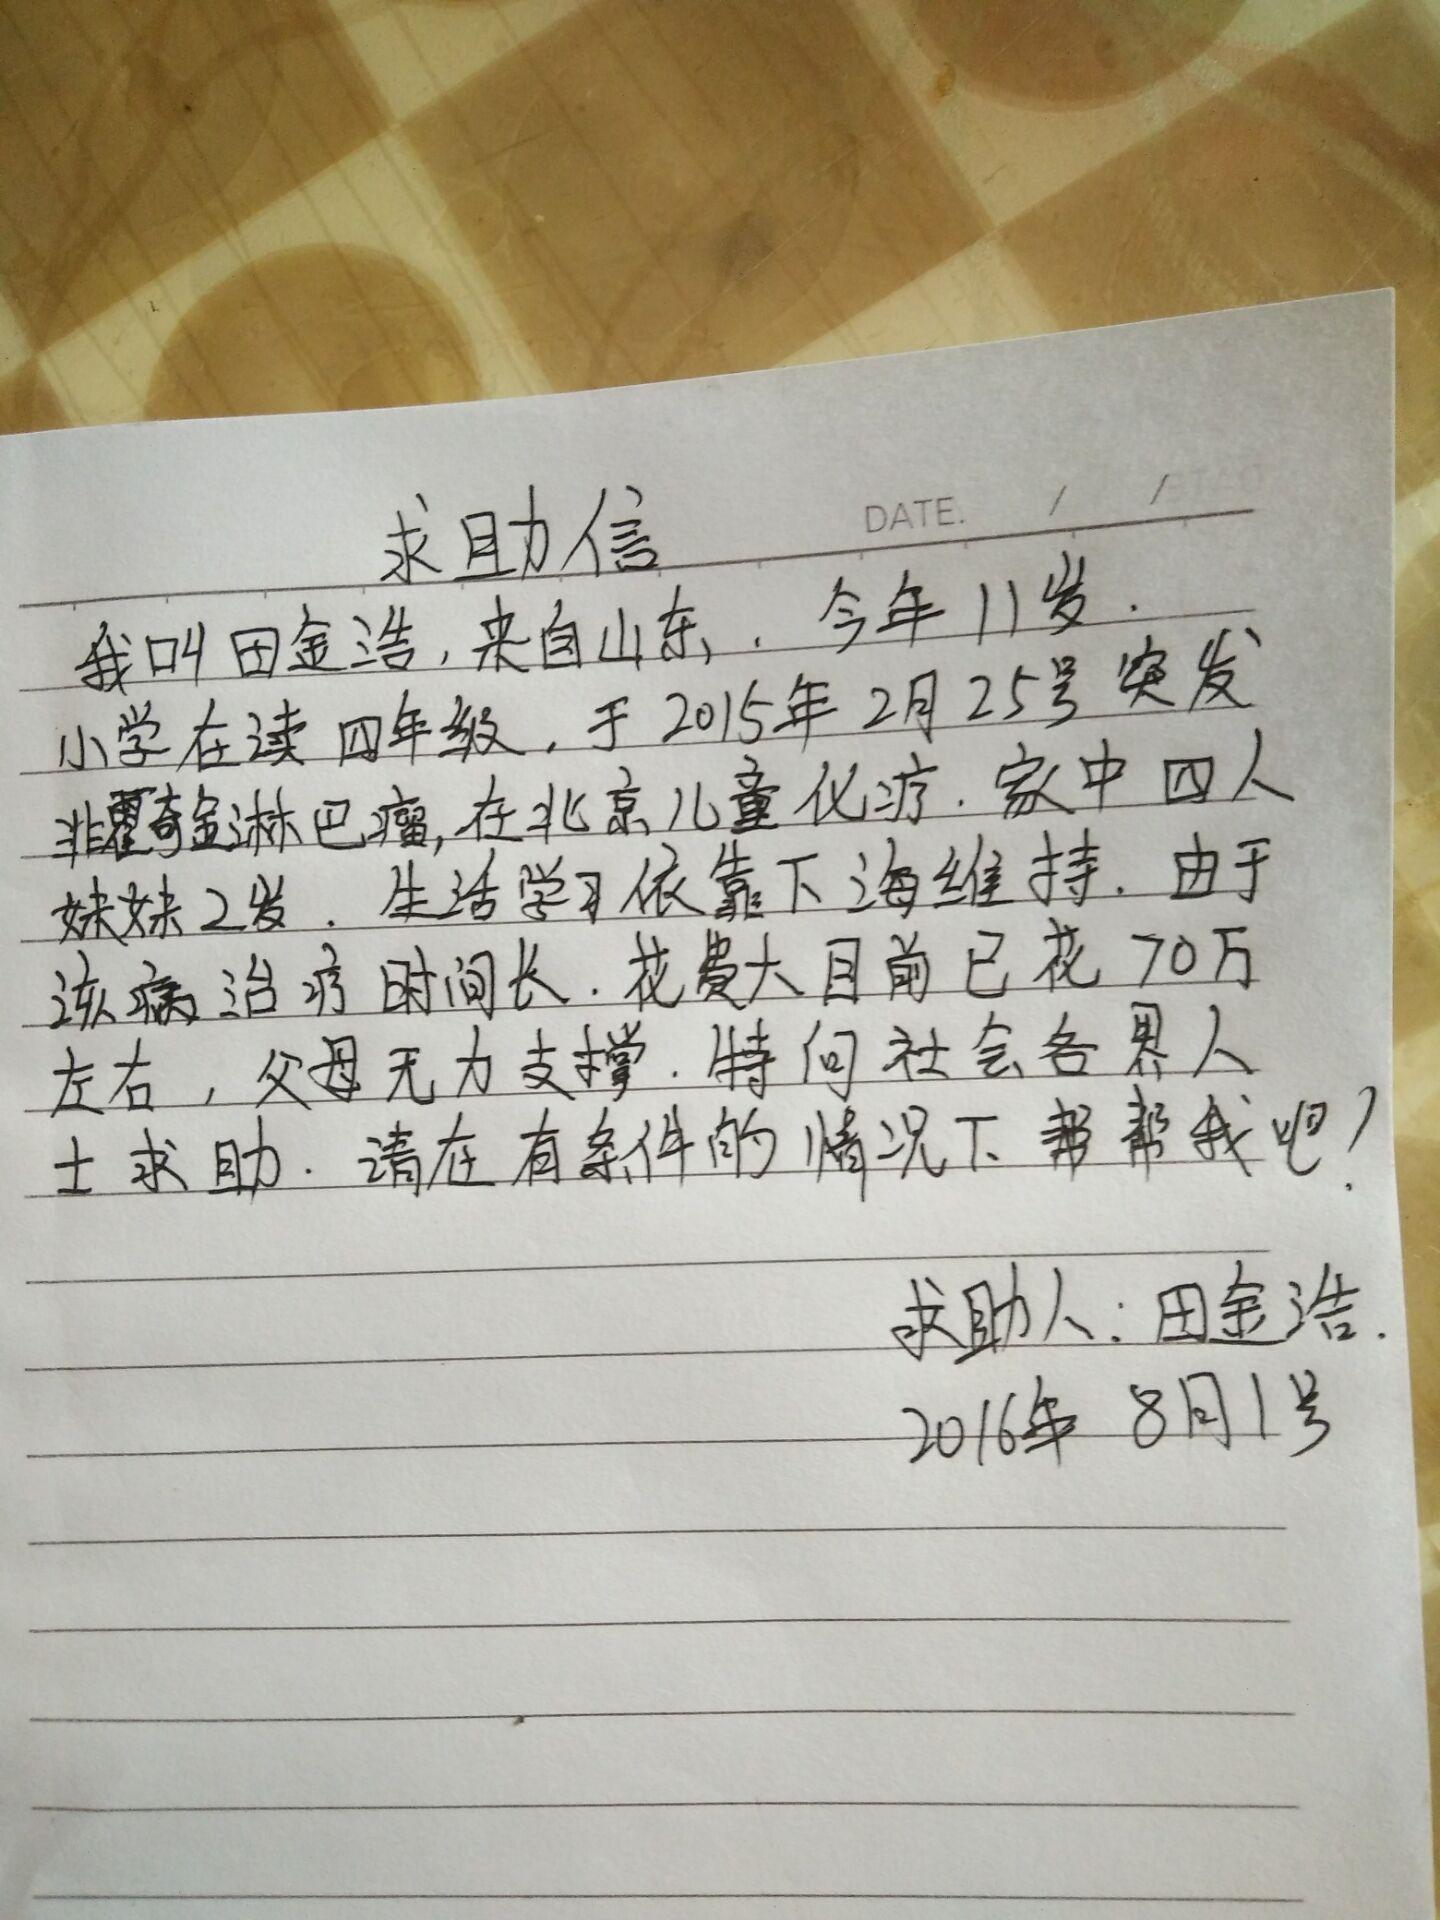 DATE. / /
求助信
我叫田金浩,来自山东,.今年11岁.
小学在读四年级.于2015年2月25号突发
非霍奇金淋巴瘤,在北京儿童化疗.家中四人
妹妹2岁.生活学习依靠下海维持.由于
该病治疗时间长.花费大目前已花70万
左右,父母无力支撑.特向社会各界人
士求助.请在有条件的情况下帮帮我吧!
求助人:田金浩.
2016年8月1号